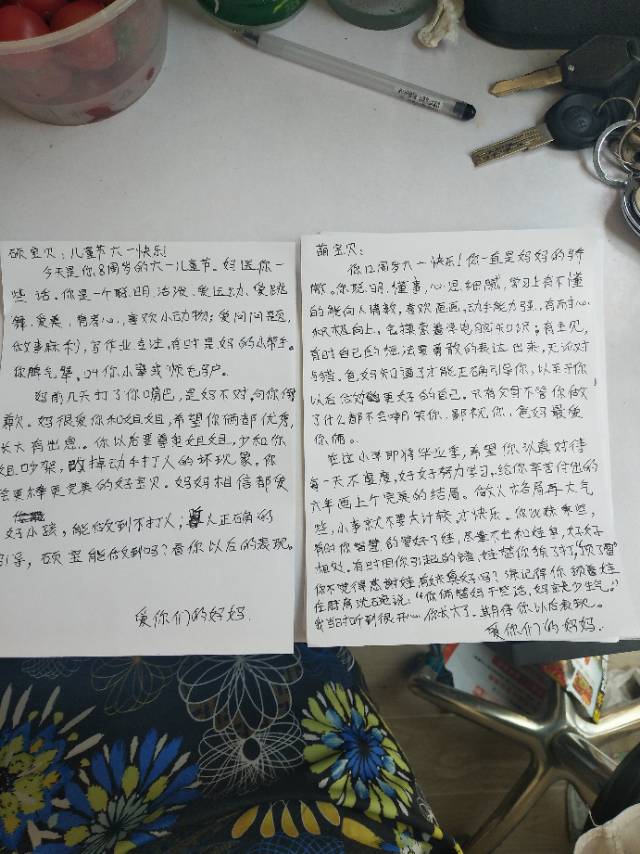 硕宝贝:儿童节六一快乐!
今天是你8周岁的六一儿童节。妈送你一
些话。你是一个聪明、活泼、爱运动、爱跳
舞、爱美、有孝心、喜欢小动物;爱问问题,
做事麻利,写作业专注,有时是妈的小帮手。
你脾气犟。叫你小犟或濒气包户。
妈前几天打了你嘴巴,是妈不对,向你道
歉。妈很爱你和姐姐,希望你俩都优秀,
长大有出息。你以后要尊重姐姐,少和你
姐吵架,改掉动手打人的坏现象,你
会更棒更完美的好宝贝。妈妈相信都是
好小孩,能做到不打人;人正确的
引导,硕宝能做到吗?看你以后的表现。
爱你们的妈妈
萌宝贝:
你12周岁六一快乐!你一直是妈妈的骄
傲。你聪明、懂事、心思细腻,学习上有不懂
的能向人请教,喜欢画画,动手能力强,有耐心,
积极向上,会探索着学电脑知识;有主见,
有时自己的想法要勇敢的表达出来,无论对
与错。爸妈知道了才能正确引导你,以至于你
以后会做更好的自己。只有父母不管你做
了什么都不会嘲笑你、鄙视你,爸妈最爱
你俩。
在这小学即将毕业季,希望你认真对待
每一天不虚度,好好努力学习,给你辛苦付出的
六年画上个完美的结局。做人格局再大气
些,小事就不要太计较,才快乐。你
有时你
相处。有时用你引起的错,娃替你挨了打,
你不觉得感谢娃
在厨房洗碗说:“你俩替妈干些活,妈就少生气。”
我当时听到很开心。你长大了。期待你以后表现。
爱你们的妈妈.